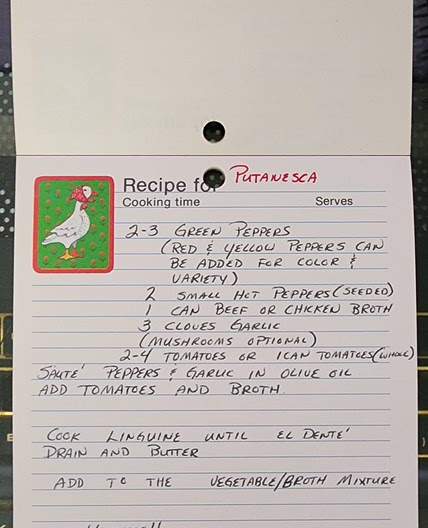 Recipe for PUTANESCA
Cooking time Serves
2-3 GREEN PEPPERS
(RED & YELLOW PEPPERS CAN
BE ADDED FOR COLOR &
VARIETY)
2 SMALL HOT PEPPERS (SEEDED)
1 CAN BEEF OR CHICKEN BROTH
3 CLOVES GARLIC
(MUSHROOMS OPTIONAL)
2-4 TOMATOES OR 1 CAN TOMATOES (WHOLE)
SAUTE' PEPPERS & GARLIC IN OLIVE OIL
ADD TOMATOES AND BROTH.
COOK LINGUINE UNTIL EL DENTE'
DRAIN AND BUTTER
ADD TO THE VEGETABLE/BROTH MIXTURE